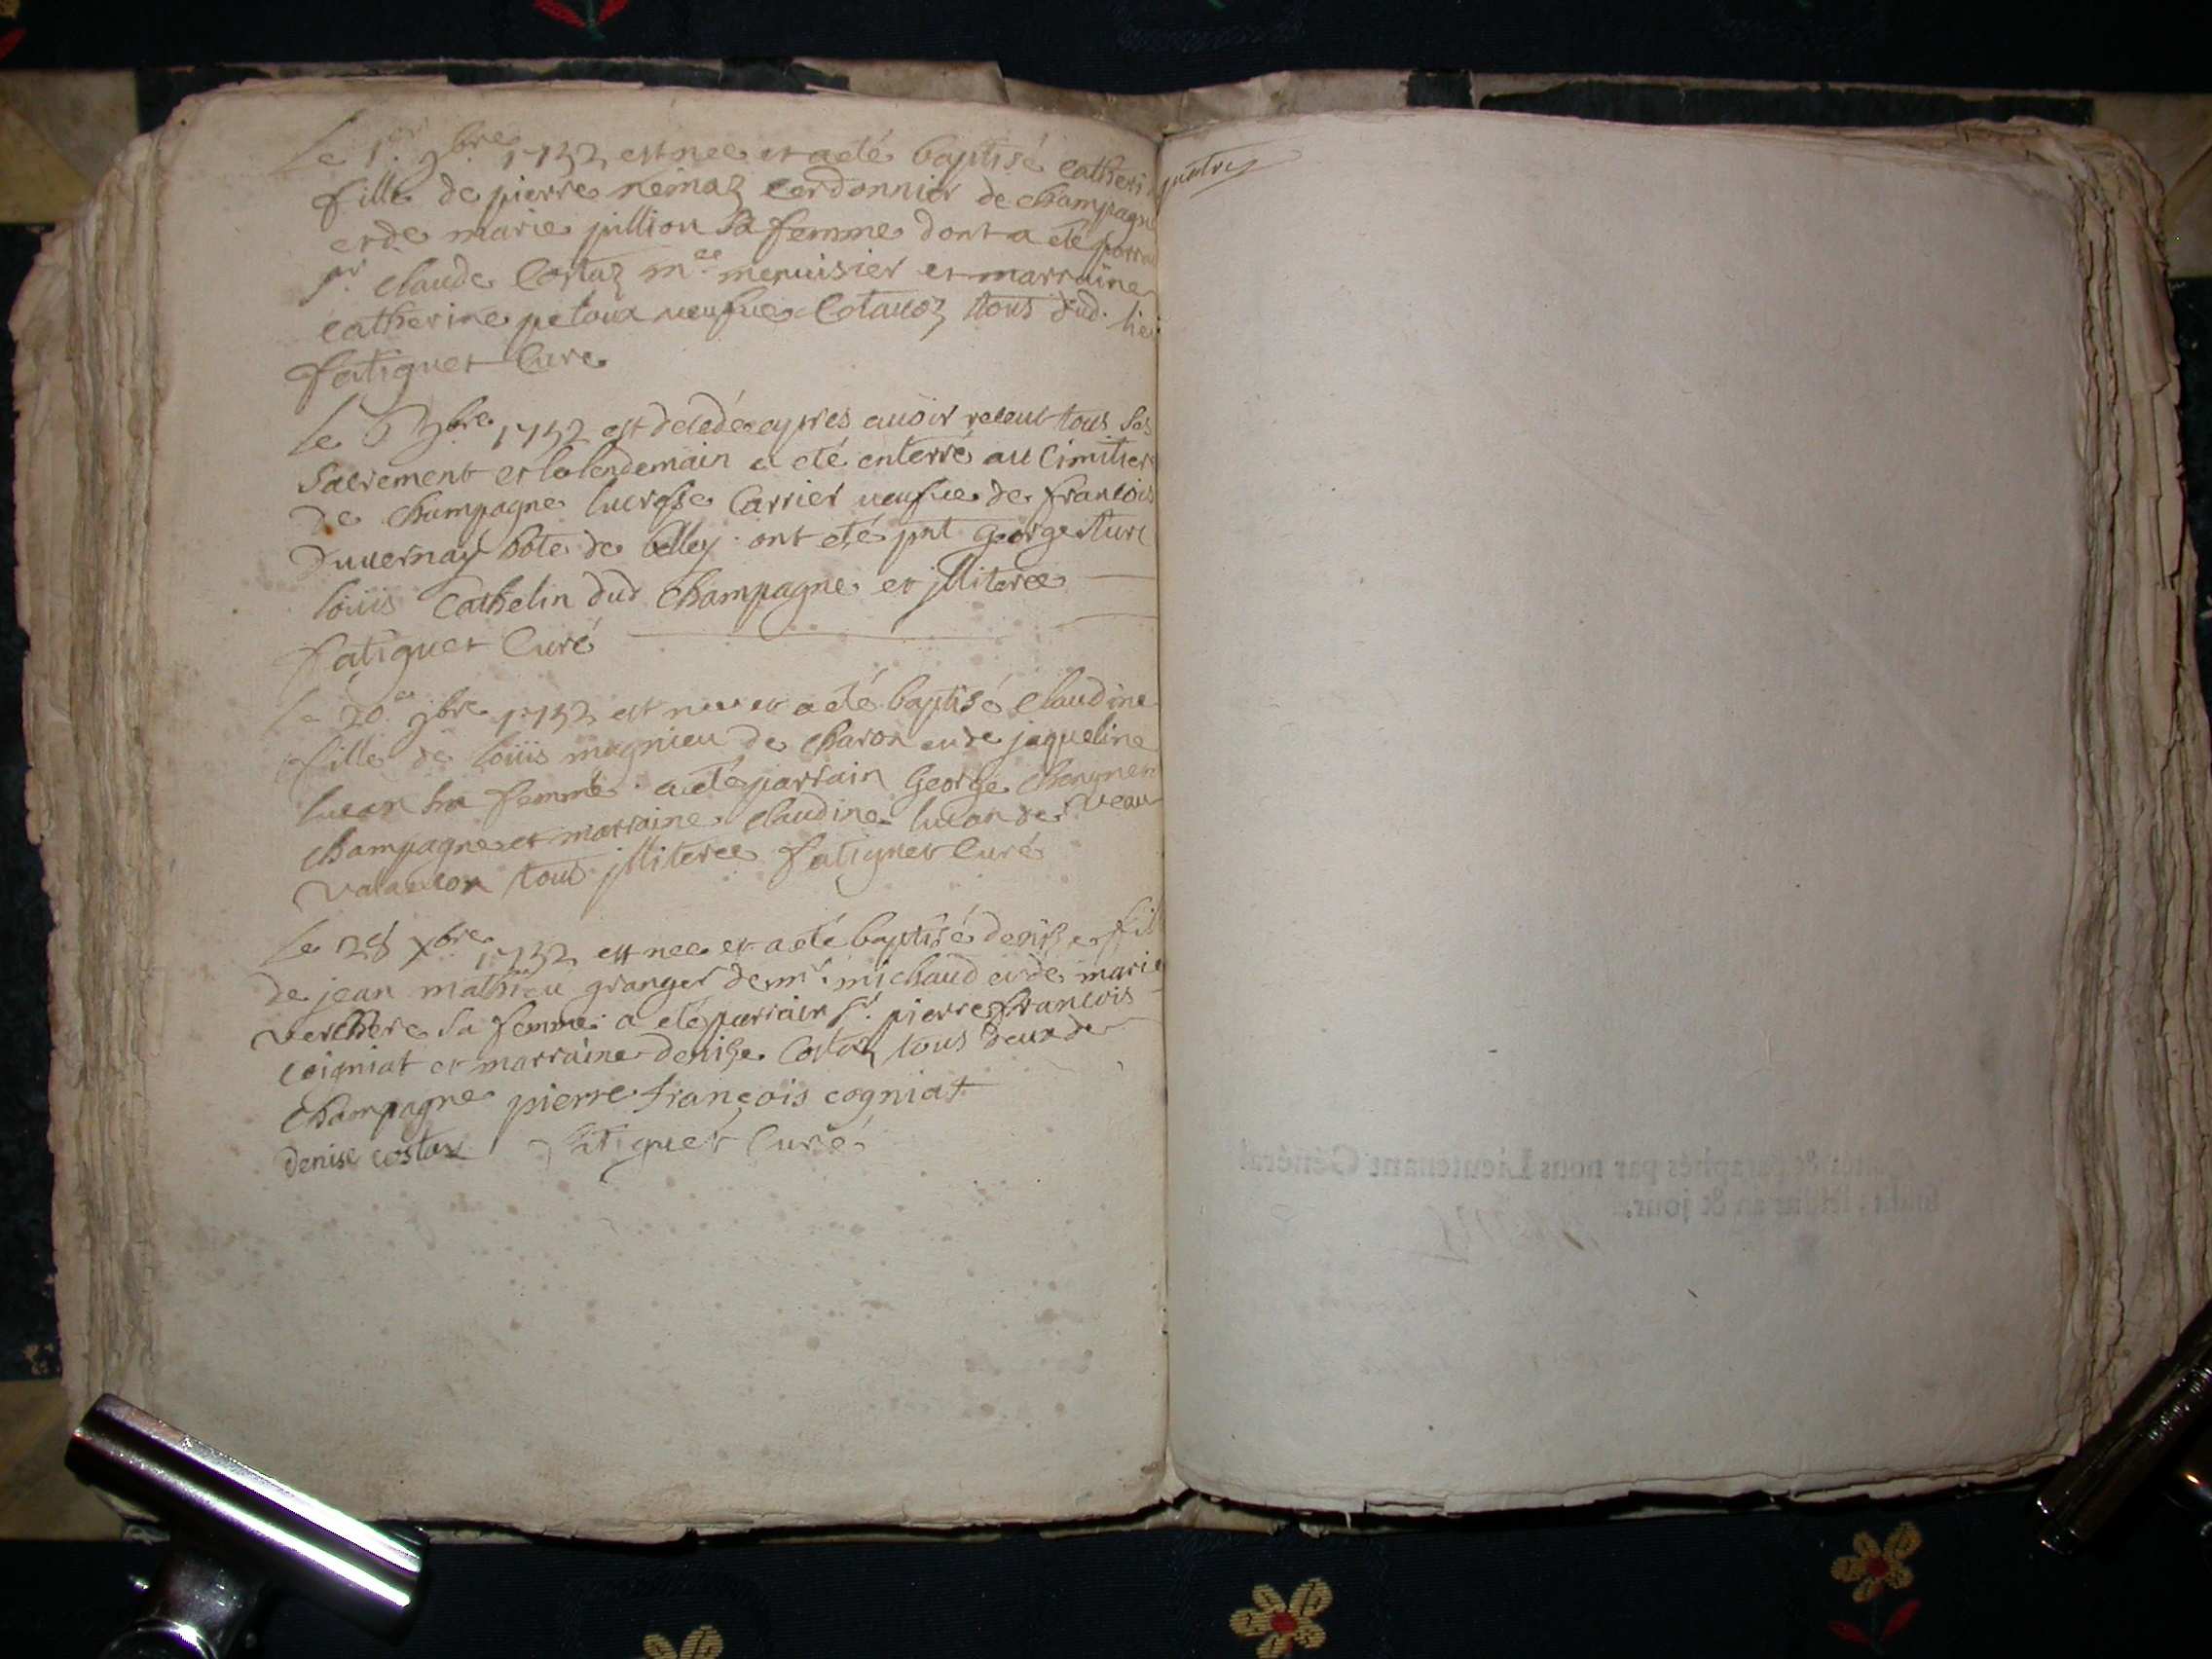 Le 1er 9bre 1732 est nee et a eté baptisé catheri
fille de pierre nemoz cordonnier de champagne
et de marie jullion sa femme dont a eté parra
sr. claude Costaz me. menuisier et marraine
catherine petoux ueufue Cotauoz tous dud. lie
fatiguet Cure
Le 9bre 1732 est decedé apres auoir receut tous ses
Sacrement et le lendemain a eté enterré au Cimitier
de champagne lucresse Carrier ueufue de francois
duuernay hote de belley. ont eté pnt george turc
loüis Cathelin dud champagne et jlliteree
fatiguet Curé
Le 20e 9bre 1732 est nee et a eté baptisé Claudine
fille de loüis magnieu de charon et de jaqueline
lucon sa femme. a eté parrain George
champagne et marraine Claudine lucon de
tous jlliteree fatiguet Curé
Le 28 xbre 1732 est nee et a eté baptisé denise fill
de jean mathieu granger de mr. michaud et de marie
verchere sa femme a eté parrain sr. pierre francois
coigniat et marraine denise Costaz tous deux de
champagne pierre françois cogniat
denise costaz fatiguet Curé
quatre
Cotté & paraphés par nous Lieutenant Général
& jour.